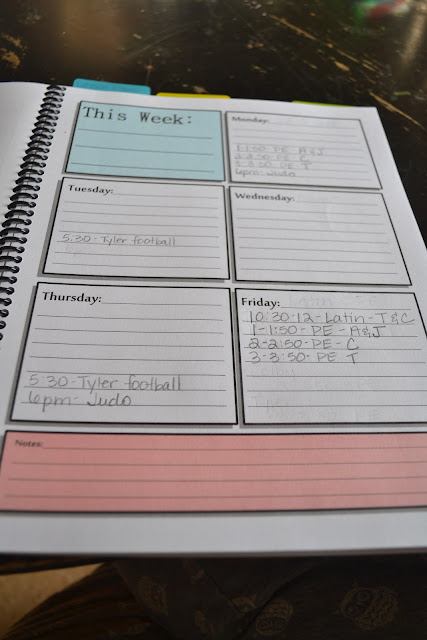 This Week:
Monday:
1-1:50 PE A&J
2-2:50-PE C
3-3:50 PE T
6pm-Judo
Tuesday:
5:30-Tyler football
Wednesday:
Thursday:
5:30-Tyler football
6pm-Judo
Friday:
10:30-12-Latin-T&C
1-1:50-PE-A&J
2-2:50-PE-C
3-3:50-PE T
Notes: